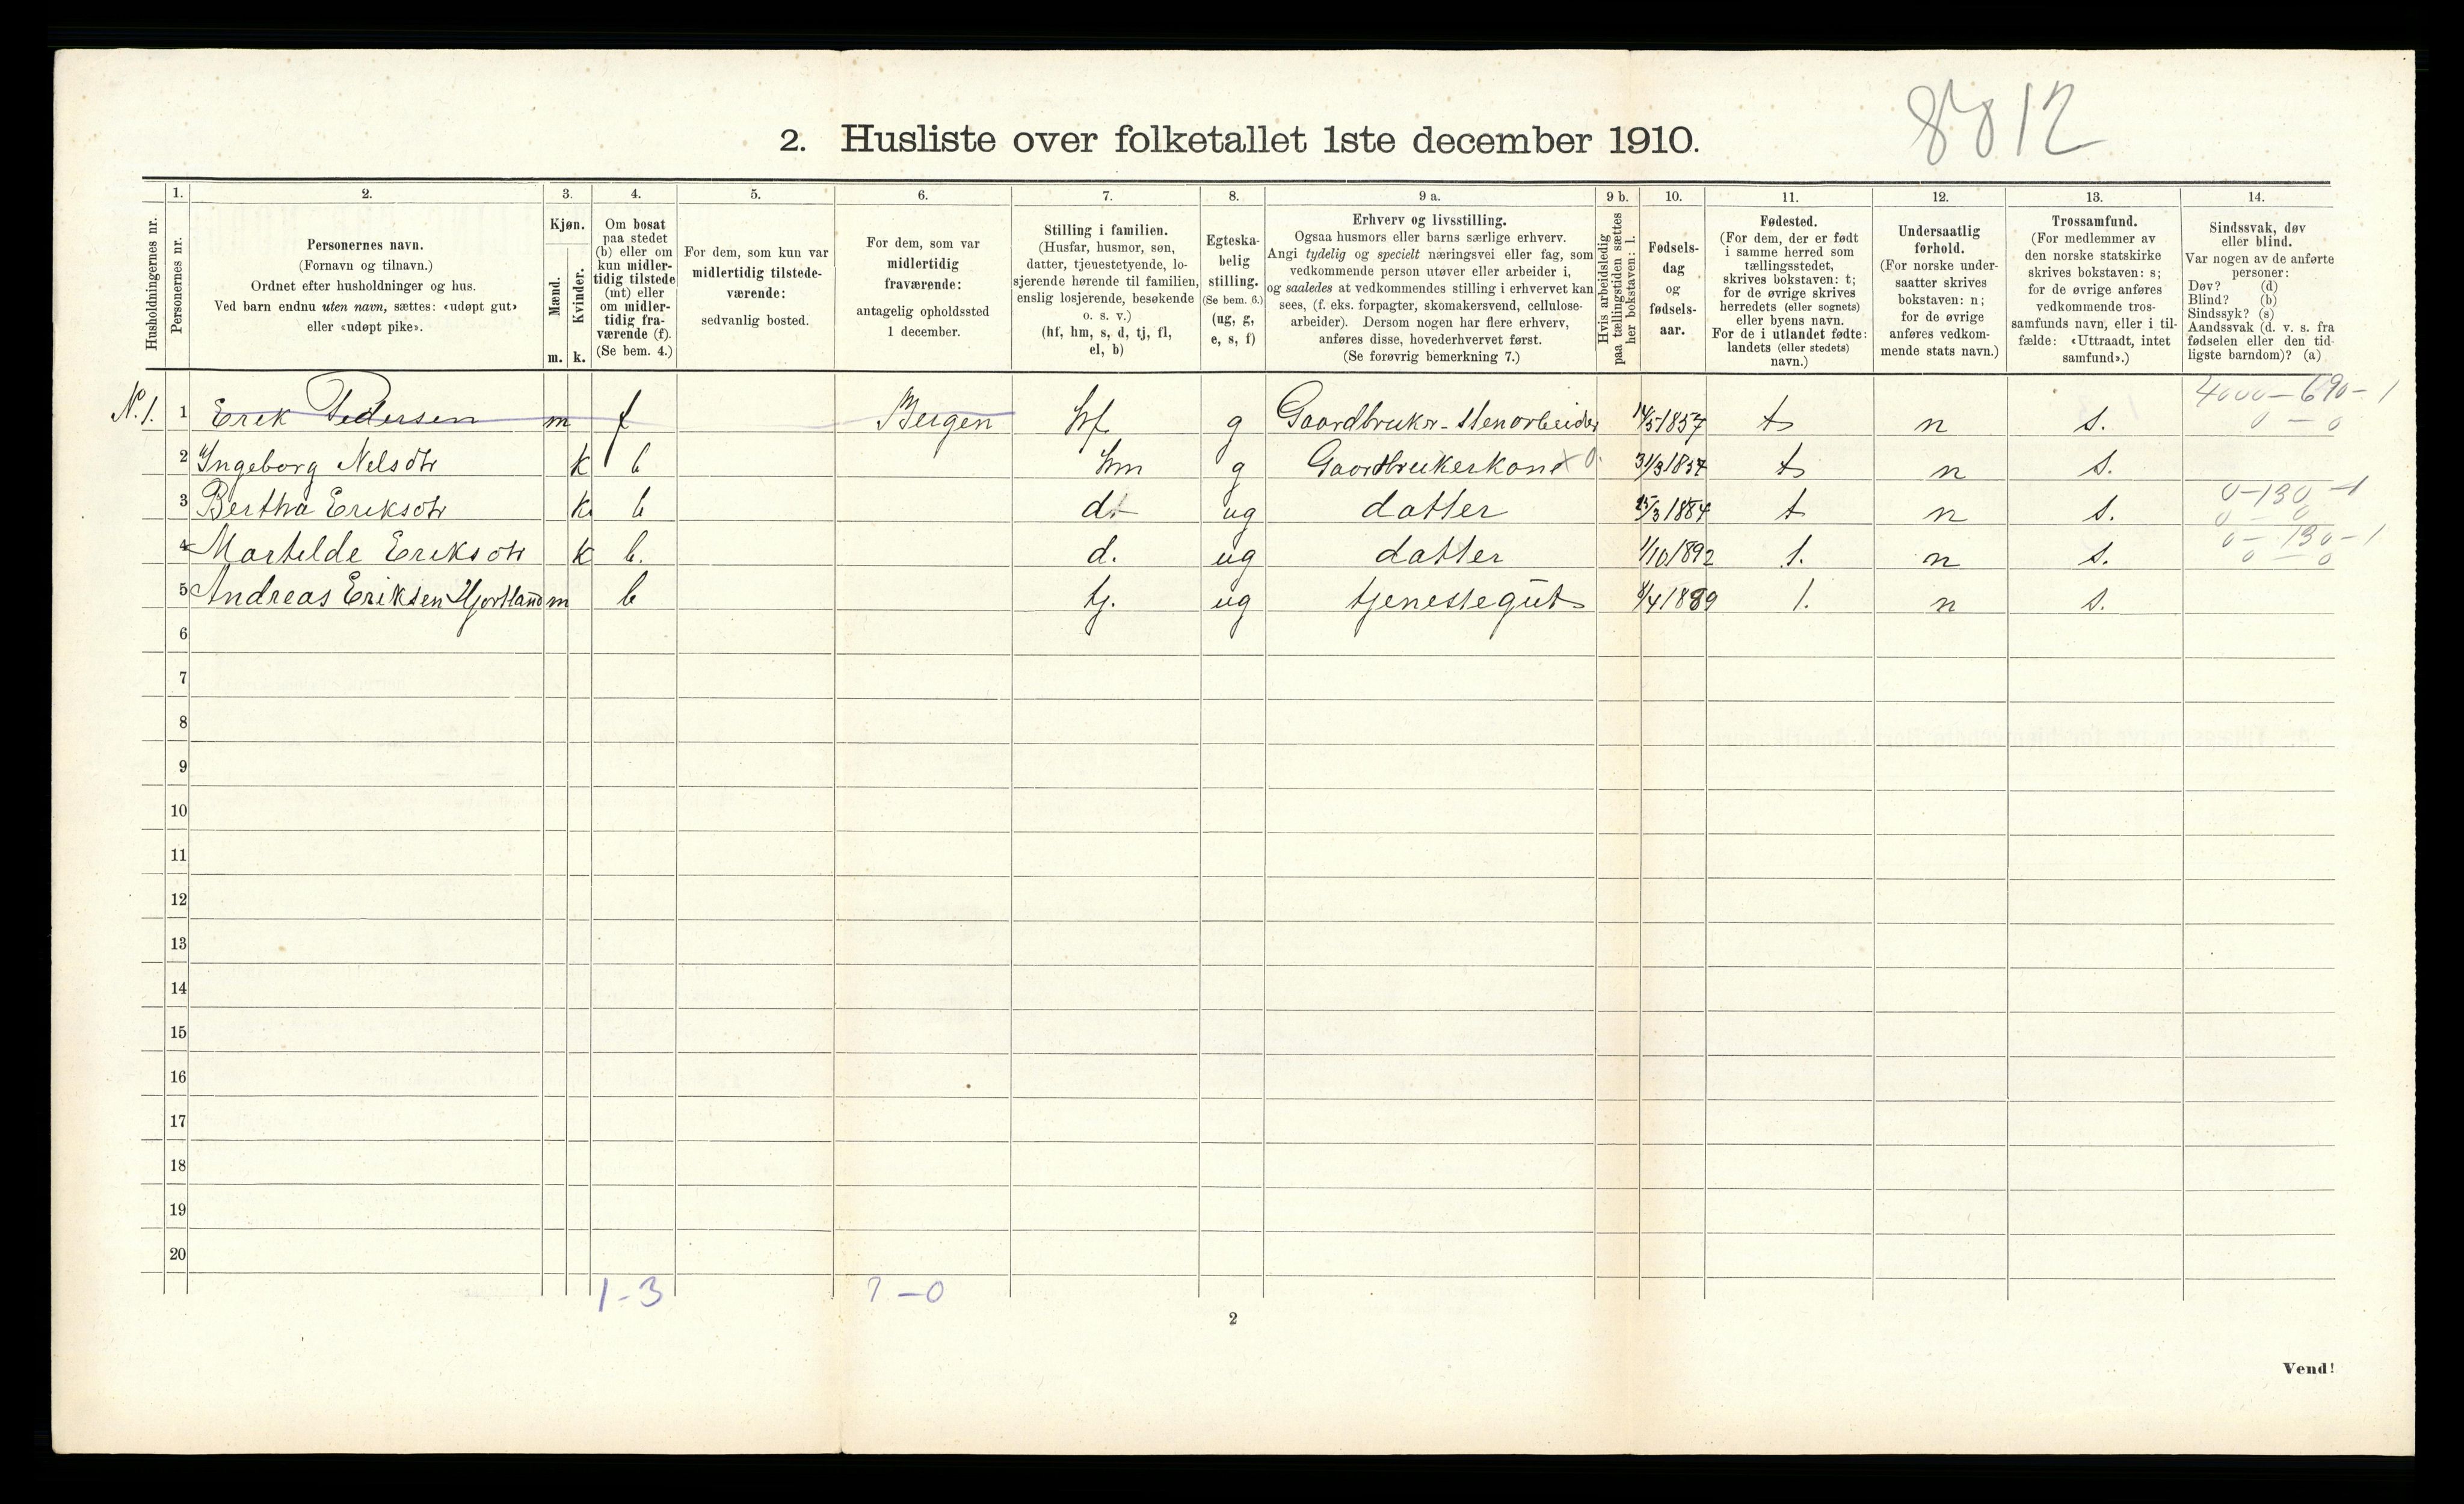 8812
2. Husliste over folketallet 1ste december 1910.
Husholdningernes nr.
1.
Personernes nr.
2.
Personernes navn.
(Fornavn og tilnavn.)
Ordnet efter husholdninger og hus.
Ved barn endnu uten navn, sættes: «udøpt gut»
eller «udøpt pike».
3.
Kjøn.
Mænd.
Kvinder.
m. k.
4.
Om bosat
paa stedet
(b) eller om
kun midler-
tidig tilstede
(mt) eller
om midler-
tidig fra-
værende (f).
(Se bem. 4.)
5.
For dem, som kun var
midlertidig tilstede-
værende:
sedvanlig bosted.
6.
For dem, som var
midlertidig
fraværende:
antagelig opholdssted
1 december.
7.
Stilling i familien.
(Husfar, husmor, søn,
datter, tjenestetyende, lo-
sjerende hørende til familien,
enslig losjerende, besøkende
o. s. v.)
(hf, hm, s, d, tj, fl,
el, b)
8.
Egteska-
belig
stilling.
(Se bem. 6.)
(ug, g,
e, s, f)
9 a.
Erhverv og livsstilling.
Ogsaa husmors eller barns særlige erhverv.
Angi tydelig og specielt næringsvei eller fag, som
vedkommende person utøver eller arbeider i,
og saaledes at vedkommendes stilling i erhvervet kan
sees, (f. eks. forpagter, skomakersvend, cellulose-
arbeider). Dersom nogen har flere erhverv,
anføres disse, hovederhvervet først.
(Se forøvrig bemerkning 7.)
9 b.
Hvis arbeidsledig
paa tællingstiden sættes
her bokstaven: l.
10.
Fødsels-
dag
og
fødsels-
aar.
11.
Fødested.
(For dem, der er født
i samme herred som
tællingsstedet,
skrives bokstaven: t;
for de øvrige skrives
herredets (eller sognets)
eller byens navn.
For de i utlandet fødte:
landets (eller stedets)
navn.)
12.
Undersaatlig
forhold.
(For norske under-
saatter skrives
bokstaven: n;
for de øvrige
anføres vedkom-
mende stats navn.)
13.
Trossamfund.
(For medlemmer av
den norske statskirke
skrives bokstaven: s;
for de øvrige anføres
vedkommende tros-
samfunds navn, eller i til-
fælde: «Uttraadt, intet
samfund».)
14.
Sindssvak, døv
eller blind.
Var nogen av de anførte
personer:
Døv? (d)
Blind? (b)
Sindssyk? (s)
Aandssvak (d. v. s. fra
fødselen eller den tid-
ligste barndom)? (a)
4000-690-1
N. 1. 1 Erik Pedersen m f Bergen hf g Gaardbruker-Stenarbeider 14/5 1857 t n s. 0 - 0
2 Ingeborg Nelsdtr k b hm g Gaardbrukerkone x 0. 31/3 1857 t n s.
0-130-1
3 Bertha Eriksdtr k b d. ug datter 25/3 1884 t n s. 0 - 0
0-130-1
4 Marhilde Eriksdtr k b. d. ug datter 1/10 1892 t. n s. 0 - 0
5 Andreas Eriksen Hjortland m b tj. ug tjenestegut 8/4 1889 t. n s.
6
7
8
9
10
11
12
13
14
15
16
17
18
19
20
1-3 ? - 0
2
Vend!